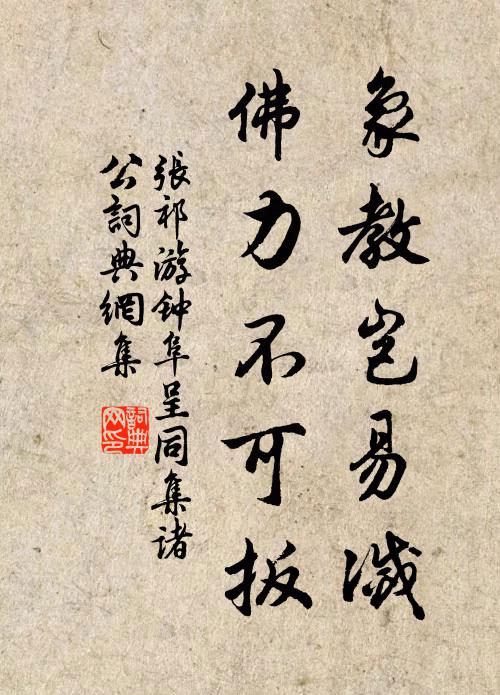 象教岂易滅
佛力不可扳
張祁游钟阜呈同集诸
公詞典網集
詞典
网印